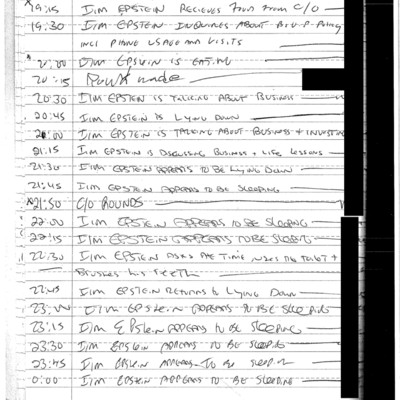 *19:15 I/M EPSTEIN RECIEVES FROM C/O
19:30 I/M EPSTEIN INQUIRES ABOUT
PHONE USAGE AND VISITS
20:00 I/M EPSTEIN IS EATING
20:15 Round made
20:30 I/M EPSTEIN IS TALKING ABOUT BUSINESS
20:45 I/M EPSTEIN IS LYING DOWN
I/M EPSTEIN IS TALKING ABOUT BUSINESS + INVESTING
21:15 I/M EPSTEIN IS DISCUSSING BUSINESS + LIFE LESSONS
21:30 I/M EPSTEIN APPEARS TO BE LYING DOWN
21:45 I/M EPSTEIN APPEARS TO BE SLEEPING
*21:50 C/O ROUNDS
22:00 I/M EPSTEIN APPEARS TO BE SLEEPING
22:15 I/M EPSTEIN APPEARS TO BE SLEEPING
22:30 I/M EPSTEIN ASKS THE TIME USES THE TOILET +
BRUSHES HIS TEETH
22:45 I/M EPSTEIN RETURNS TO LYING DOWN
23:00 I/M EPSTEIN APPEARS TO BE SLEEPING
23:15 I/M EPSTEIN APPEARS TO BE SLEEPING
23:30 I/M EPSTEIN APPEARS TO BE SLEEPING
23:45 I/M EPSTEIN APPEARS TO BE SLEEPING
0:00 I/M EPSTEIN APPEARS TO BE SLEEPING